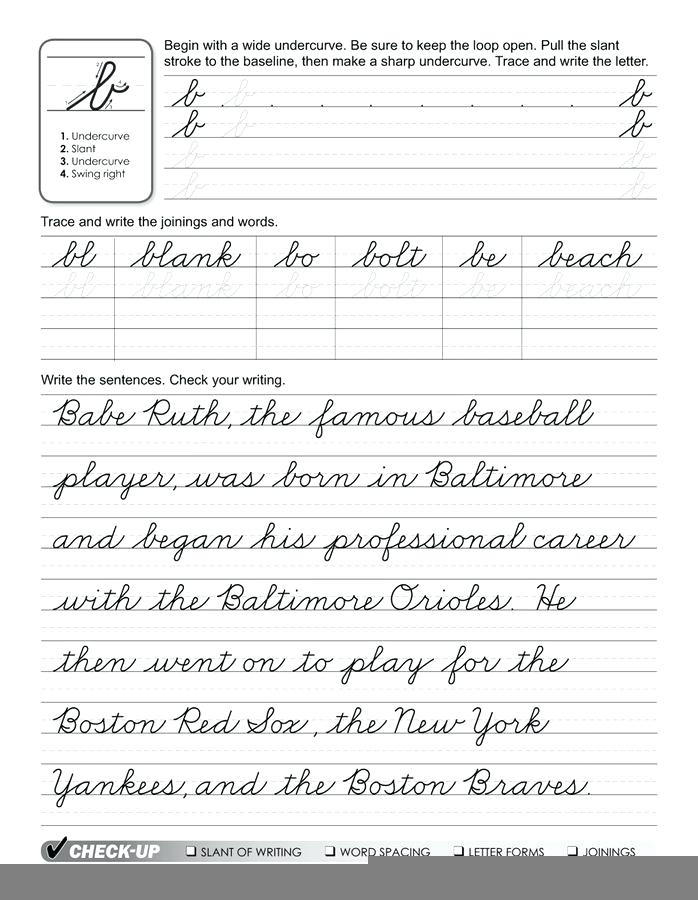 Begin with a wide undercurve. Be sure to keep the loop open. Pull the slant
stroke to the baseline, then make a sharp undercurve. Trace and write the letter.
b
1. Undercurve
2. Slant
3. Undercurve
4. Swing right
b b b
b b b
b b
b b
Trace and write the joinings and words.
bl blank bo bolt be beach
bl blank bo bolt be beach
Write the sentences. Check your writing.
Babe Ruth, the famous baseball
player, was born in Baltimore
and began his professional career
with the Baltimore Orioles. He
then went on to play for the
Boston Red Sox, the New York
Yankees, and the Boston Braves.
CHECK-UP SLANT OF WRITING WORD SPACING LETTER FORMS JOININGS